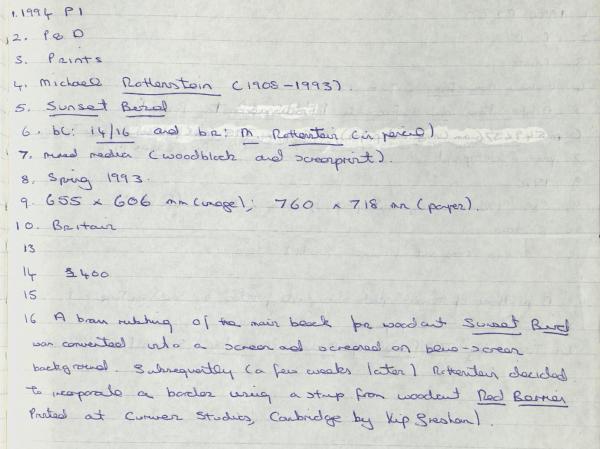 1. 1994 P1
2. P & D
3. Prints
4. Michael Rothenstein (1908-1993).
5. Sunset Bend
6. bl: 14/16 and br: M Rothenstein (in pencil)
7. mixed media (woodblock and screenprint).
8. Spring 1993.
9. 655 x 606 mm (image); 760 x 718 mm (paper).
10. Britain
13
14 £400
15
16 A brass rubbing of the main block for woodcut Sunset Bend
was converted into a screen and screened on blue-screen
background. Subsequently (a few weeks later) Rothenstein decided
to incorporate a border using a strip from woodcut Red Barrier
Printed at Curwen Studios, Cambridge by Kip Gresham).